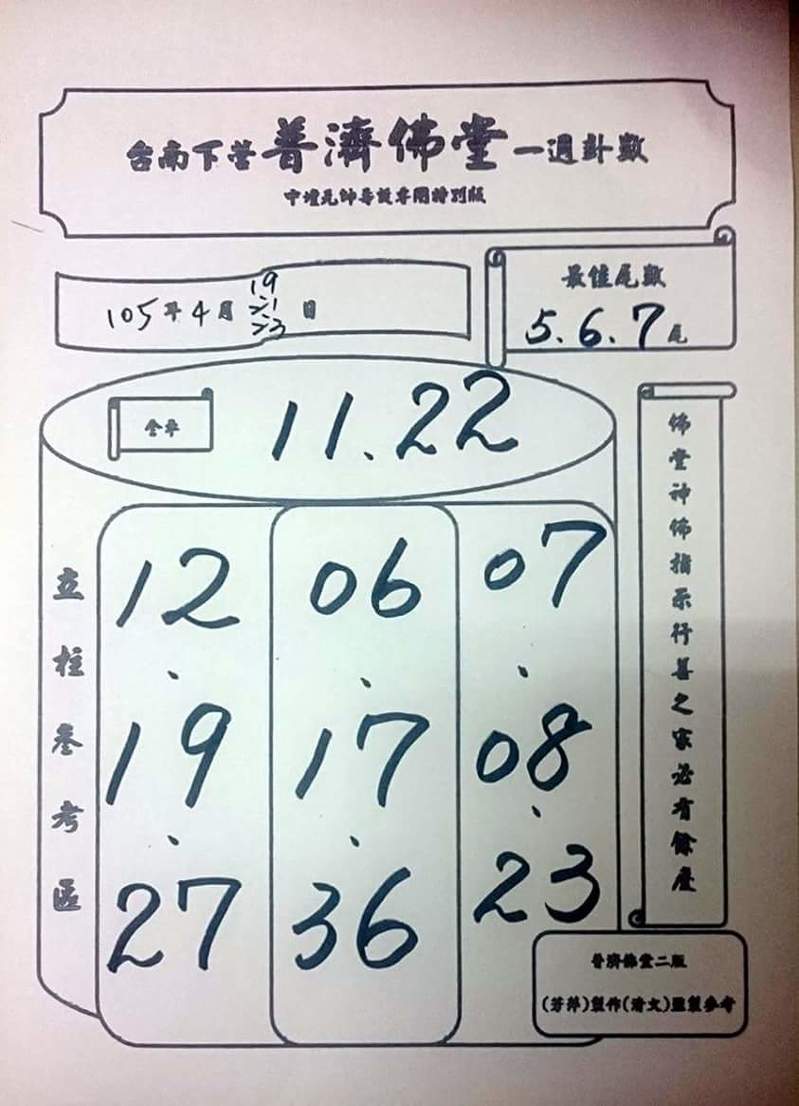 台南下營普濟佛堂一週計數
中壇元帥專設專開特別版
105年4月19.21.23日
最佳尾數
5.6.7尾
全車
11.22
立柱參考區
12.19.27
06.17.36
07.08.23
佛堂神佛指示行善之家必有餘慶
普濟佛堂二版
(芳萍)製作(清文)監製參考